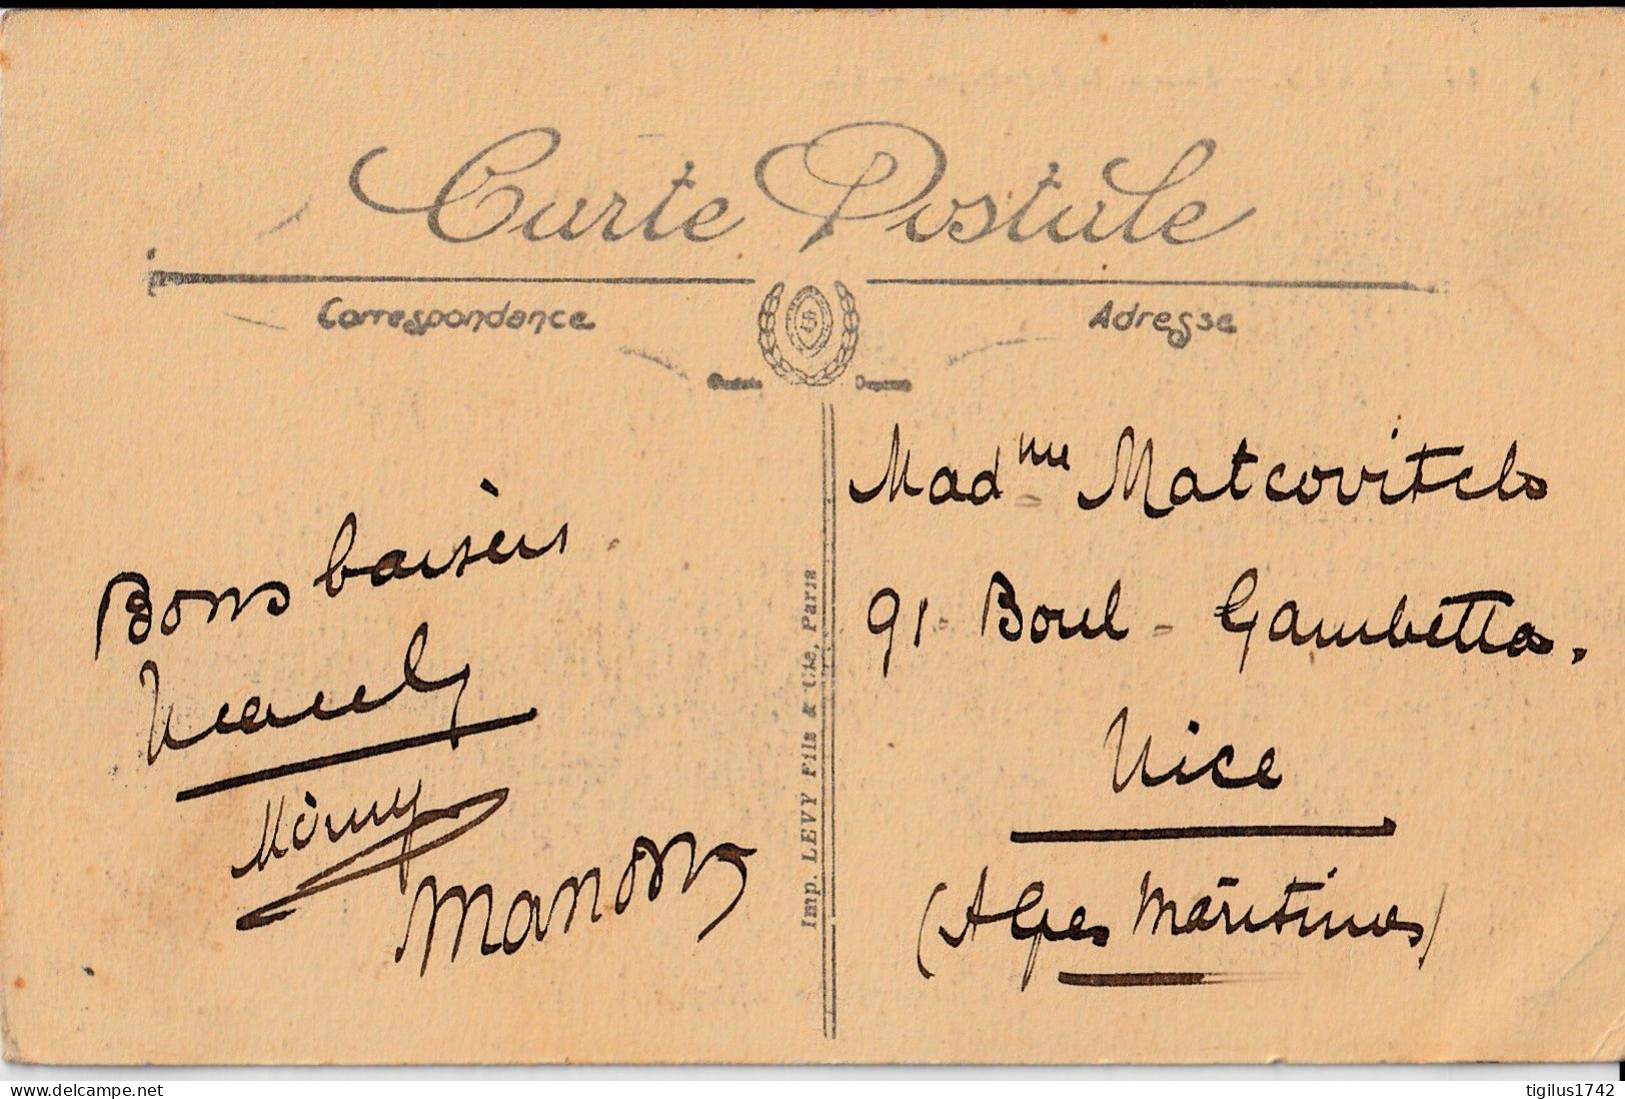 Carte Postale
Correspondance
Adresse
Bons baisers
Mimy
Manon
Imp. LEVY Fils & Cie, Paris
Madme Matcovitch
91 - Boul - Gambetta.
Nice
(Alpes Maritimes)
www.delcampe.net
tigilus1742